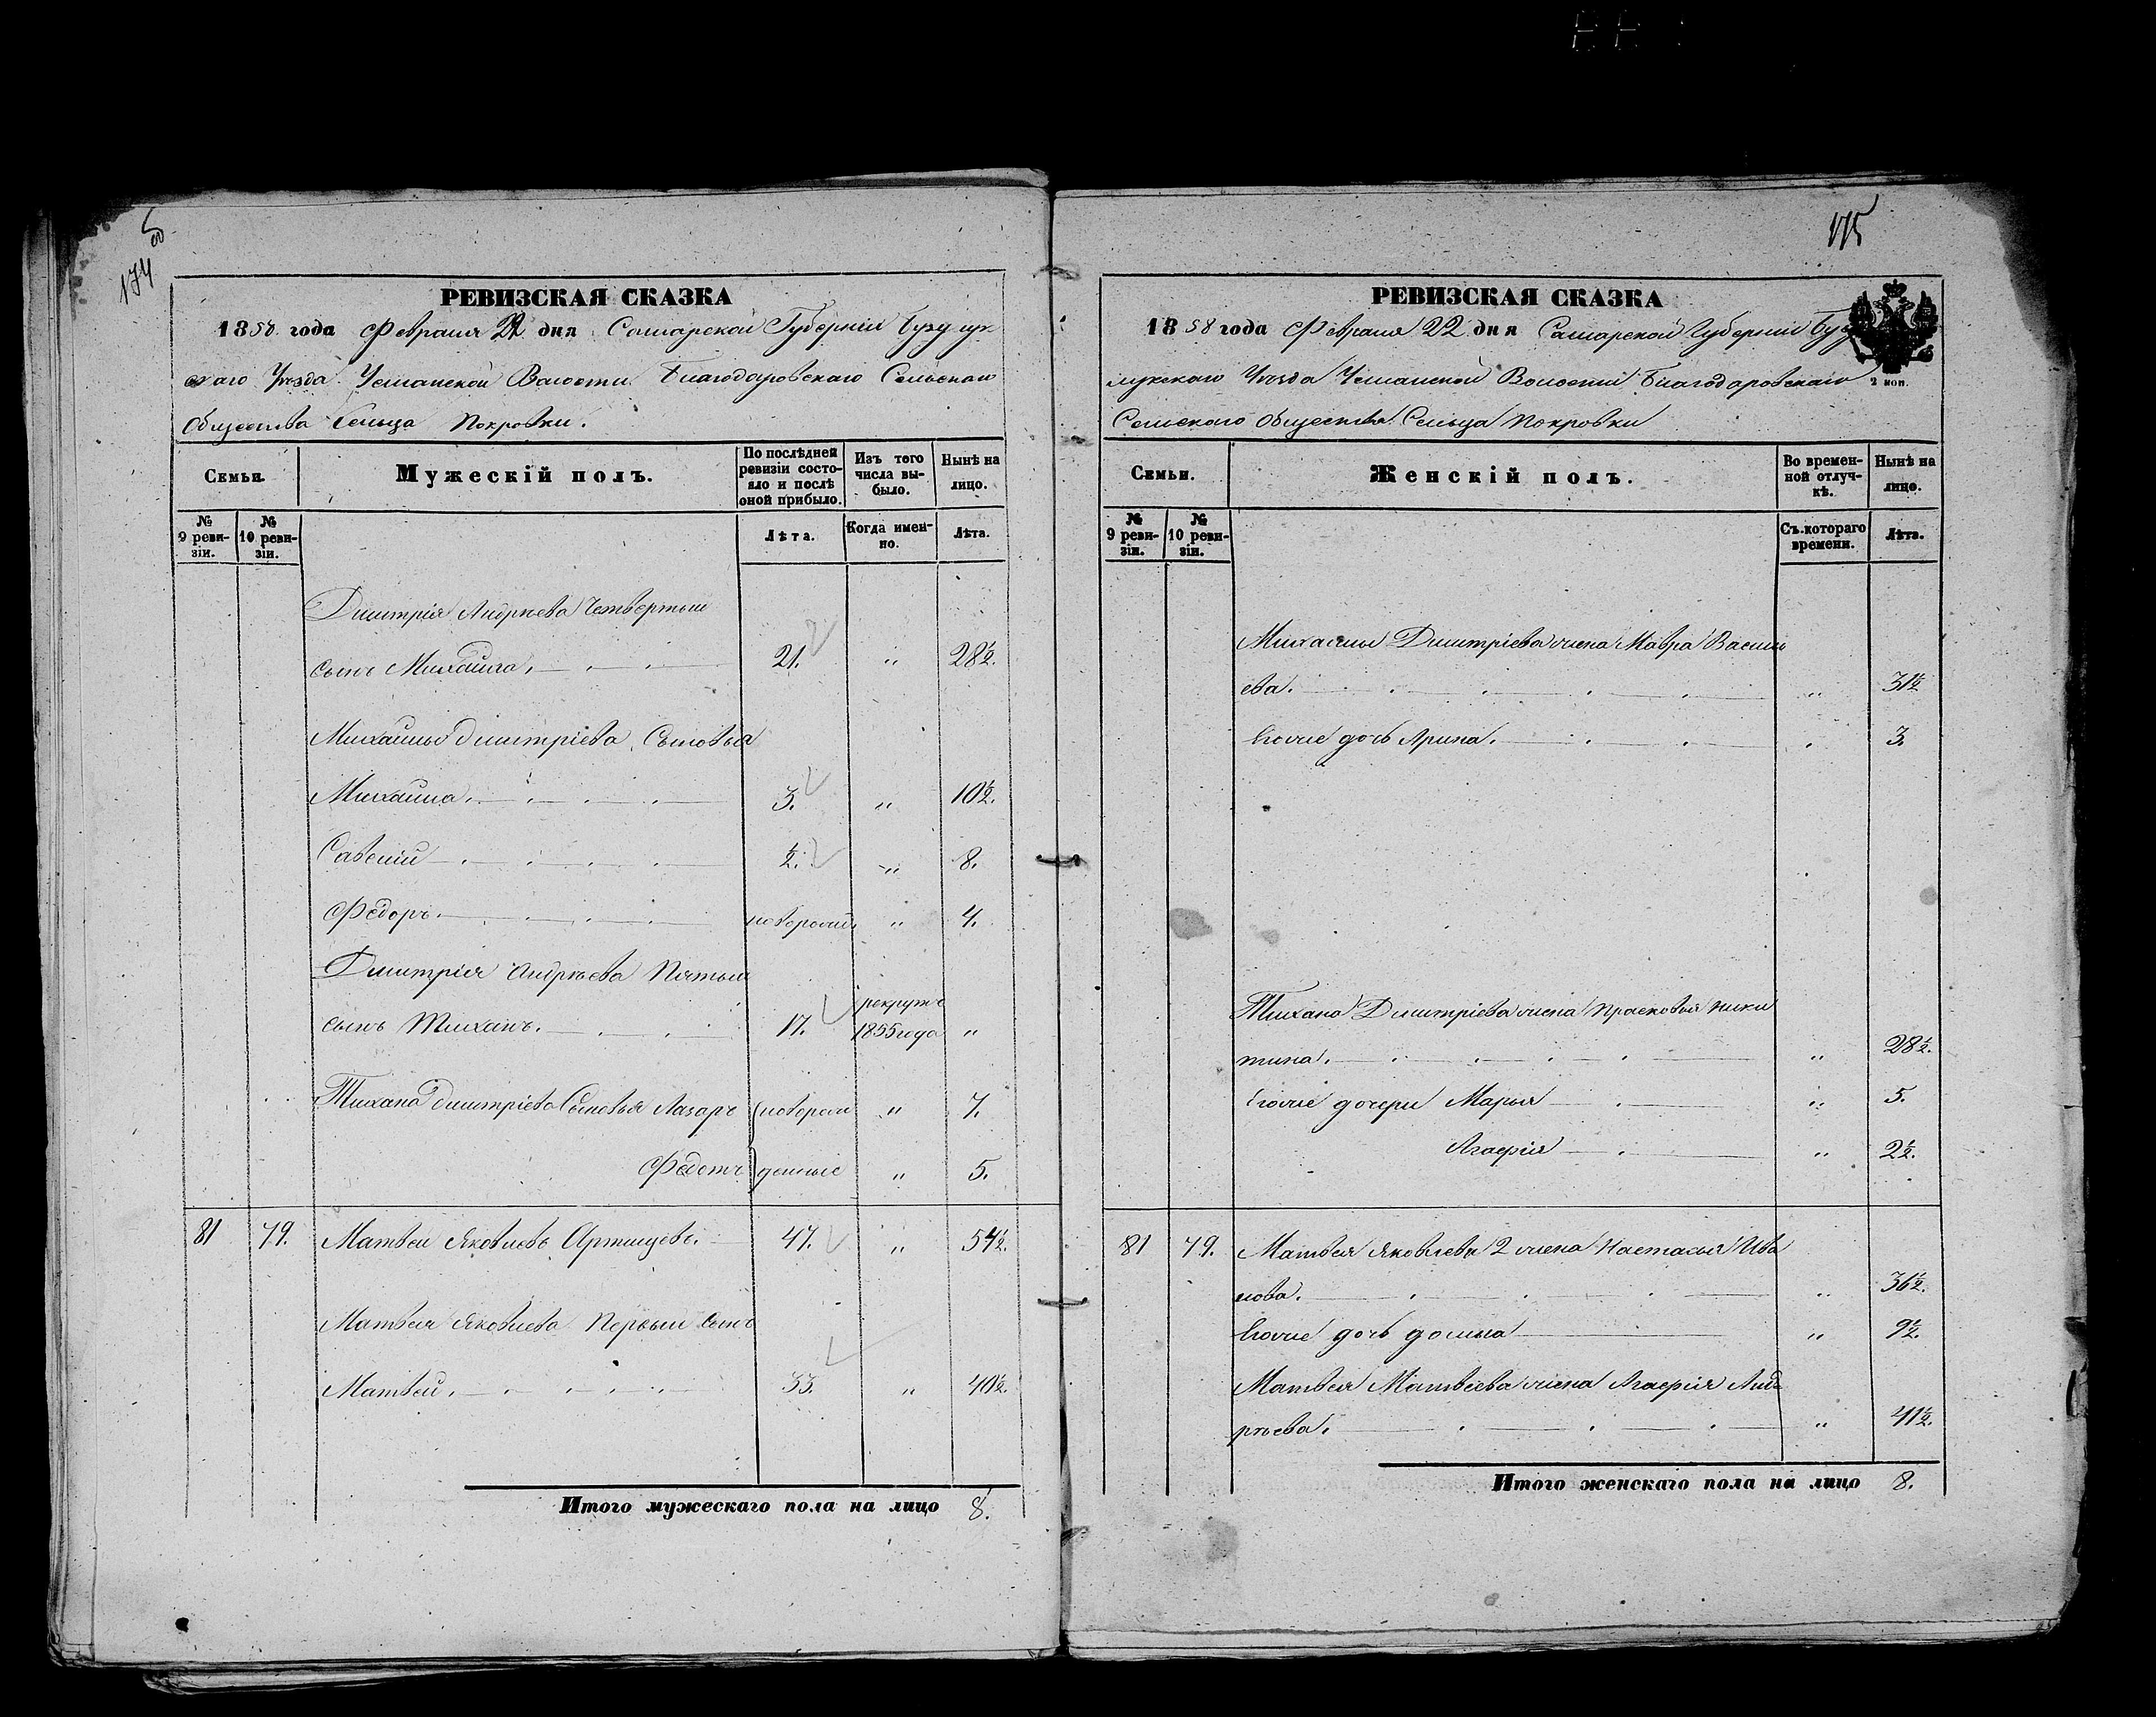 174 об
РЕВИЗСКАЯ СКАЗКА
1858 года Февраля 22 дня Самарской Губерніи Бузулук
скаго Уѣзда Усманской Валости Благодаровскаго Сельскаго
Общества Сельца Покровки.
Семьи.
Мужескій полъ.
По послѣдней ревизіи состояло и послѣ оной прибыло.
Изъ того числа выбыло.
Нынѣ на лицо.
№ 9 ревизіи.
№ 10 ревизіи.
Лѣта.
Когда именно.
Лѣта.
Дмитрія Андрѣева Четвертый
сынъ Михайла. 21. „ 28½.
Михайлы Дмитріева Сыновья
Михайла. 3. „ 10½.
Савелій ½. „ 8.
Федоръ. „ 4.
Дмитрія Андрѣева Пятый
сынъ Тиханъ. 17. рекрутъ 1855 года „
Тихана Дмитріева Сыновья Лазарь новорож „ 7.
Федотъ денные „ 5.
81 79. Матвей Яковлевъ Артищевъ. 47. „ 54½.
Матвея Яковлева Первый сынъ
Матвей. 33. „ 40½.
Итого мужескаго пола на лицо 8.
175
РЕВИЗСКАЯ СКАЗКА
1858 года Февраля 22 дня Самарской Губерніи Бузу
лукскаго Уѣзда Усманской Волости Благодаровскаго
2 коп.
Сельскаго Общества Сельца Покровки
Семьи.
Женскій полъ.
Во временной отлучкѣ.
Нынѣ на лицо.
№ 9 ревизіи.
№ 10 ревизіи.
Съ котораго времени.
Лѣта.
Михайлы Дмитріева жена Мавра Василь
ева. „ 31½
Егоже дочь Арина. „ 3.
Тихана Дмитріева жена Прасковья Ники
тина. „ 28½.
Егоже дочери Марья „ 5.
Агафія „ 2½.
81 79. Матвея Яковлева 2 жена Настасья Ива
нова. „ 36½.
Егоже дочь Домна „ 9½.
Матвея Матвѣева жена Агафія Анд
рѣева. „ 41½.
Итого женскаго пола на лицо 8.